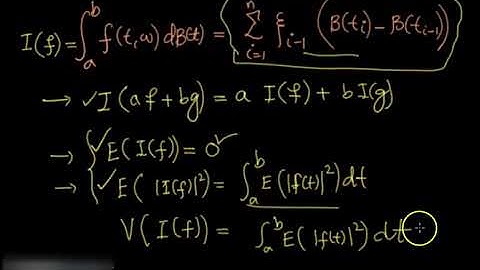 I(f) = ∫_a^b f(t,ω) dB(t) = ∑_{i=1}^n ξ_{i-1} (B(t_i) - B(t_{i-1}))
→ ✓ I(af + bg) = a I(f) + b I(g)
→ { ✓ E(I(f)) = 0 ✓
→ { ✓ E(|I(f)|²) = ∫_a^b E(|f(t)|²) dt
V(I(f)) = ∫_a^b E(|f(t)|²) dt